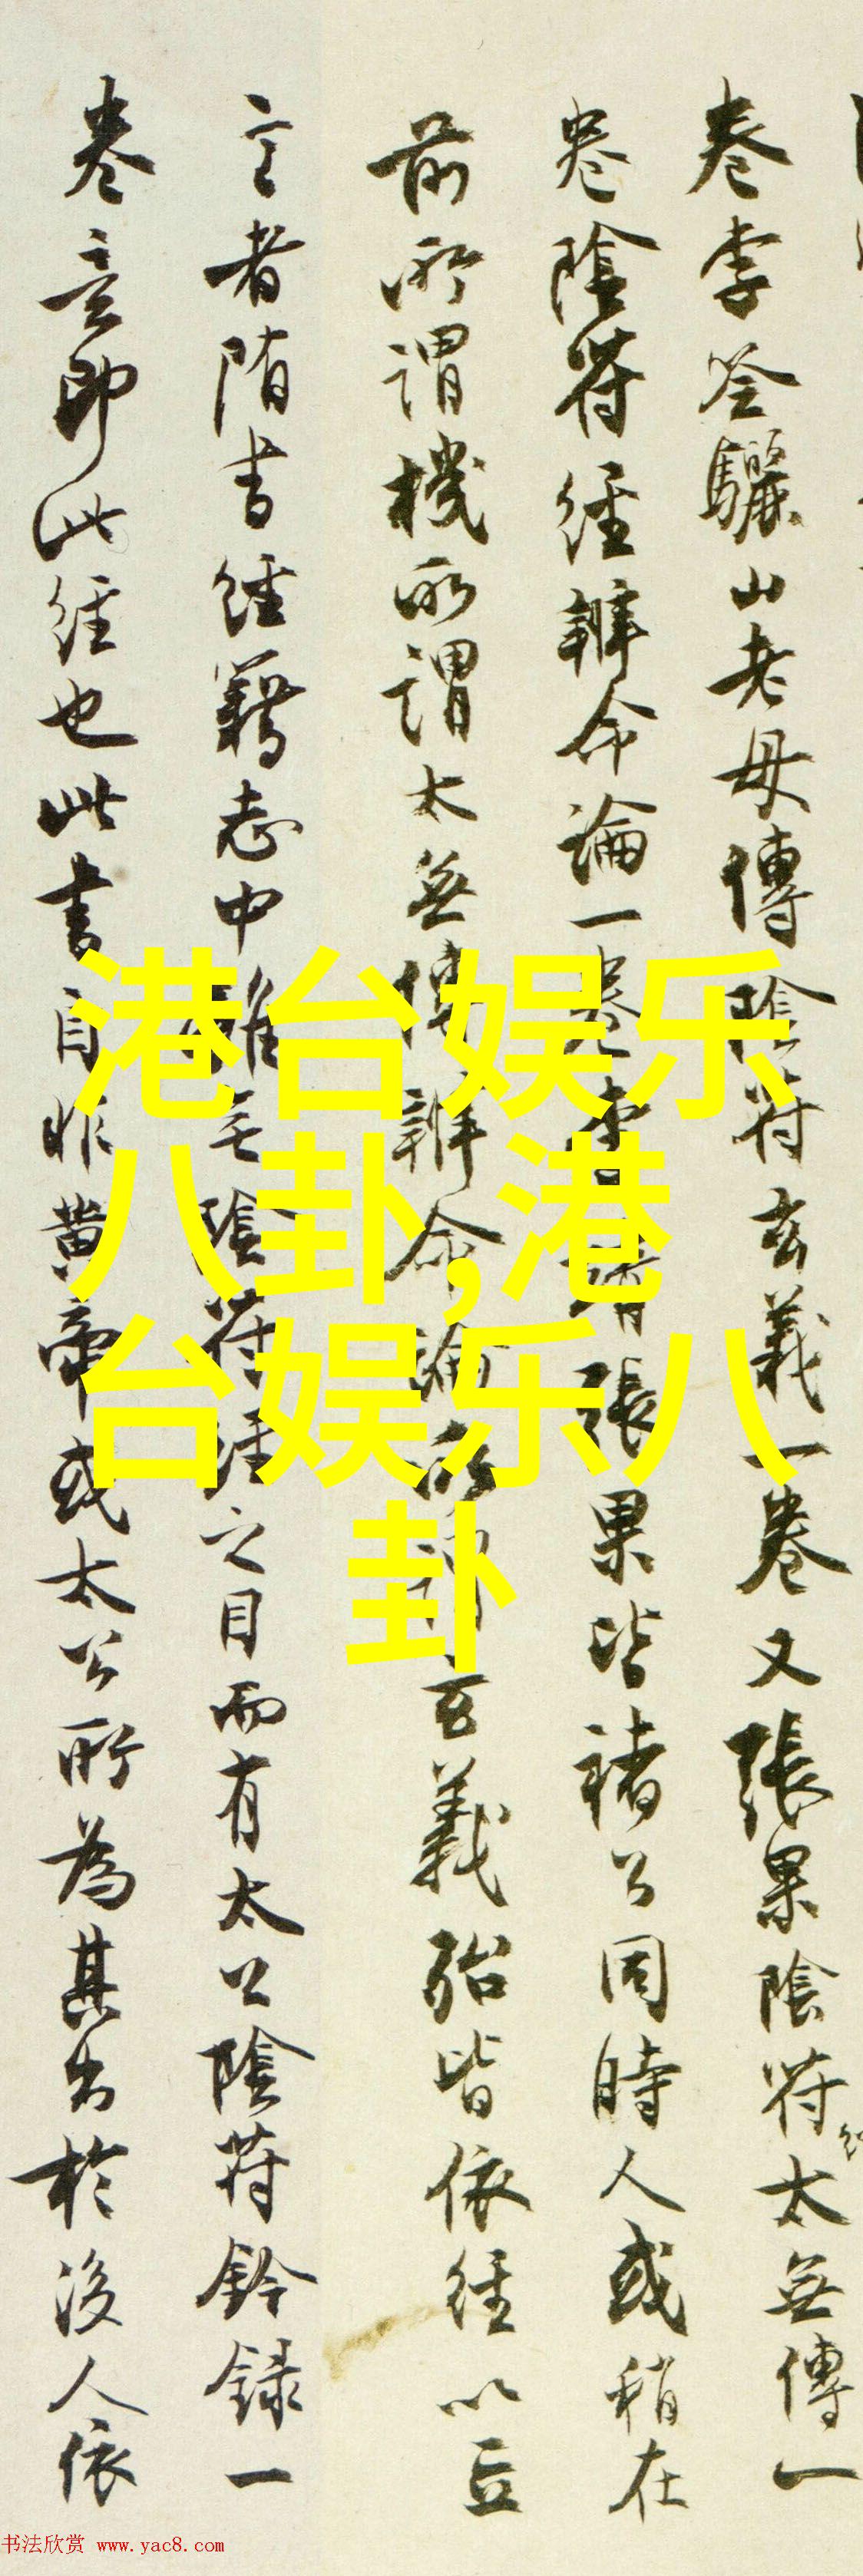 卷李筌驪山老母傳陰符玄義一卷又張果陰符太無傳一
卷陰符經辨命論一卷李張果皆褚公同時人或稍在
前所謂機所謂太無傳辨命論所玄義殆皆依經以立
言者隋書經籍志中雖無陰符經之目而有太公陰符鈐録一
卷意即此經也此書自非黃帝或太公所為其出於後人依
港台娱乐
八卦,港
台娱乐八
卦
书法欣赏 www.yac8.com